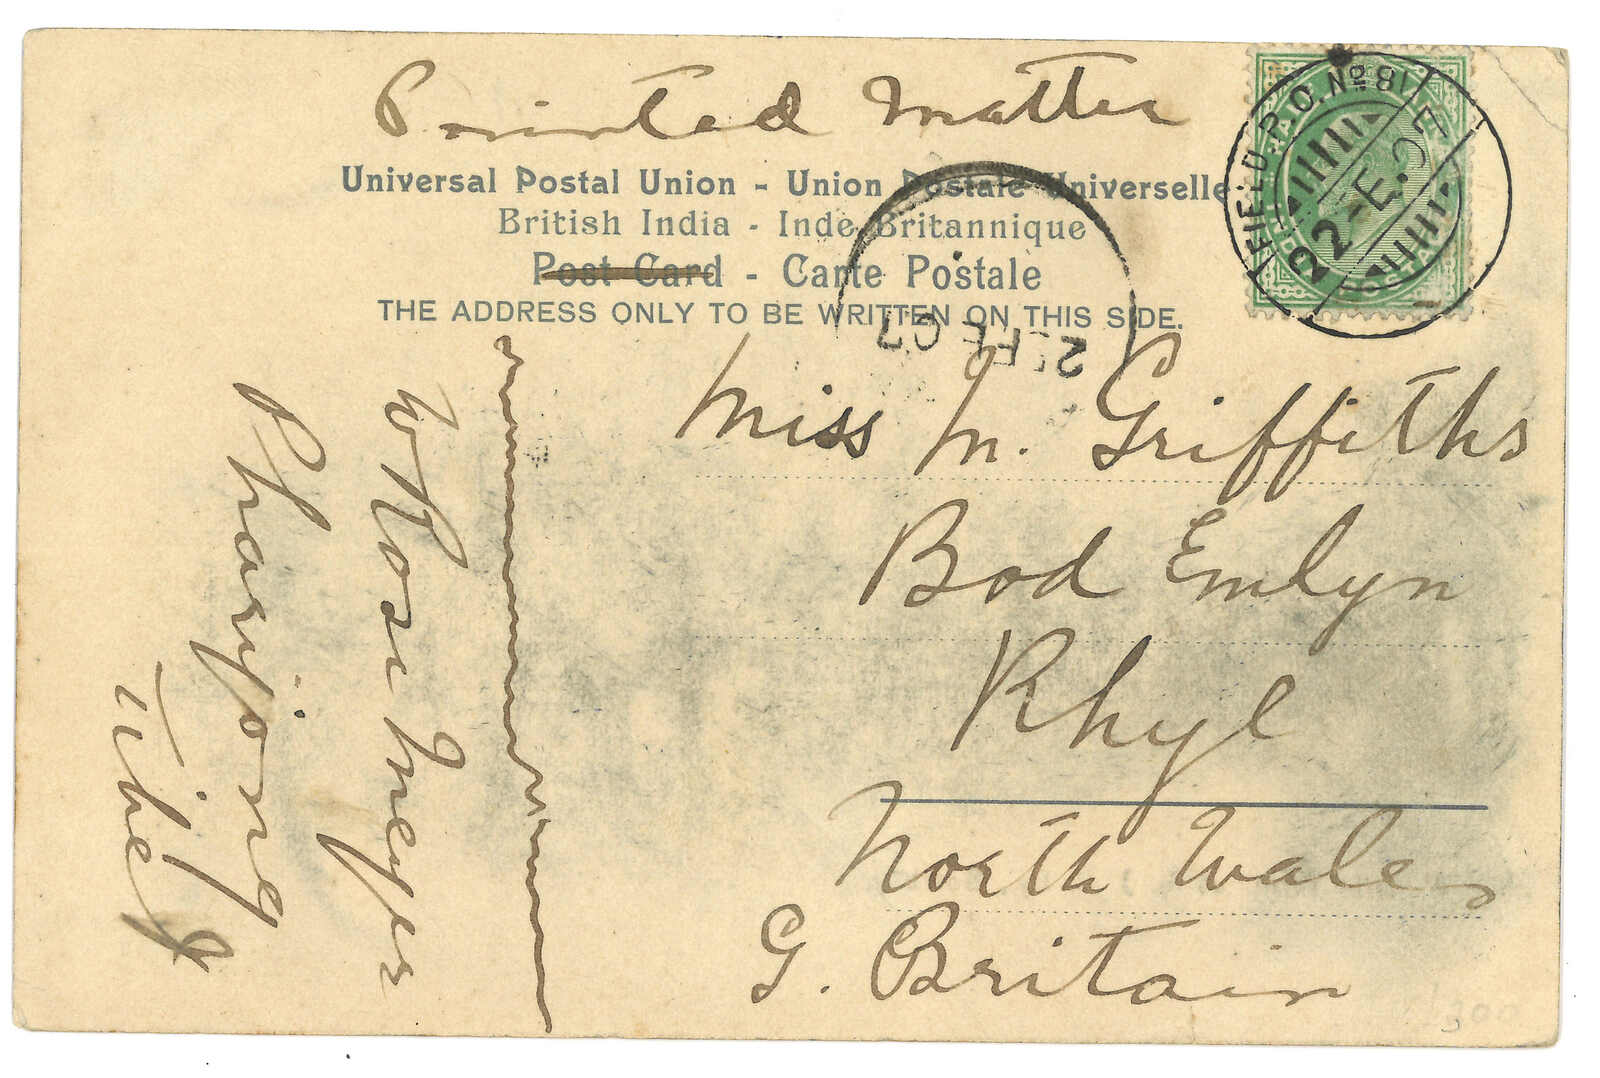 Printed Matter
Universal Postal Union - Union Postale Universelle
British India - Inde Britannique
Post Card - Carte Postale
THE ADDRESS ONLY TO BE WRITTEN ON THIS SIDE.
FIELD P.O. No 81
22 FE. 07
2 FE 07
Miss M. Griffiths
Bod Emlyn
Rhyl
North Wales
G. Britain
W Rosemeyer
Pharijong
Tibet